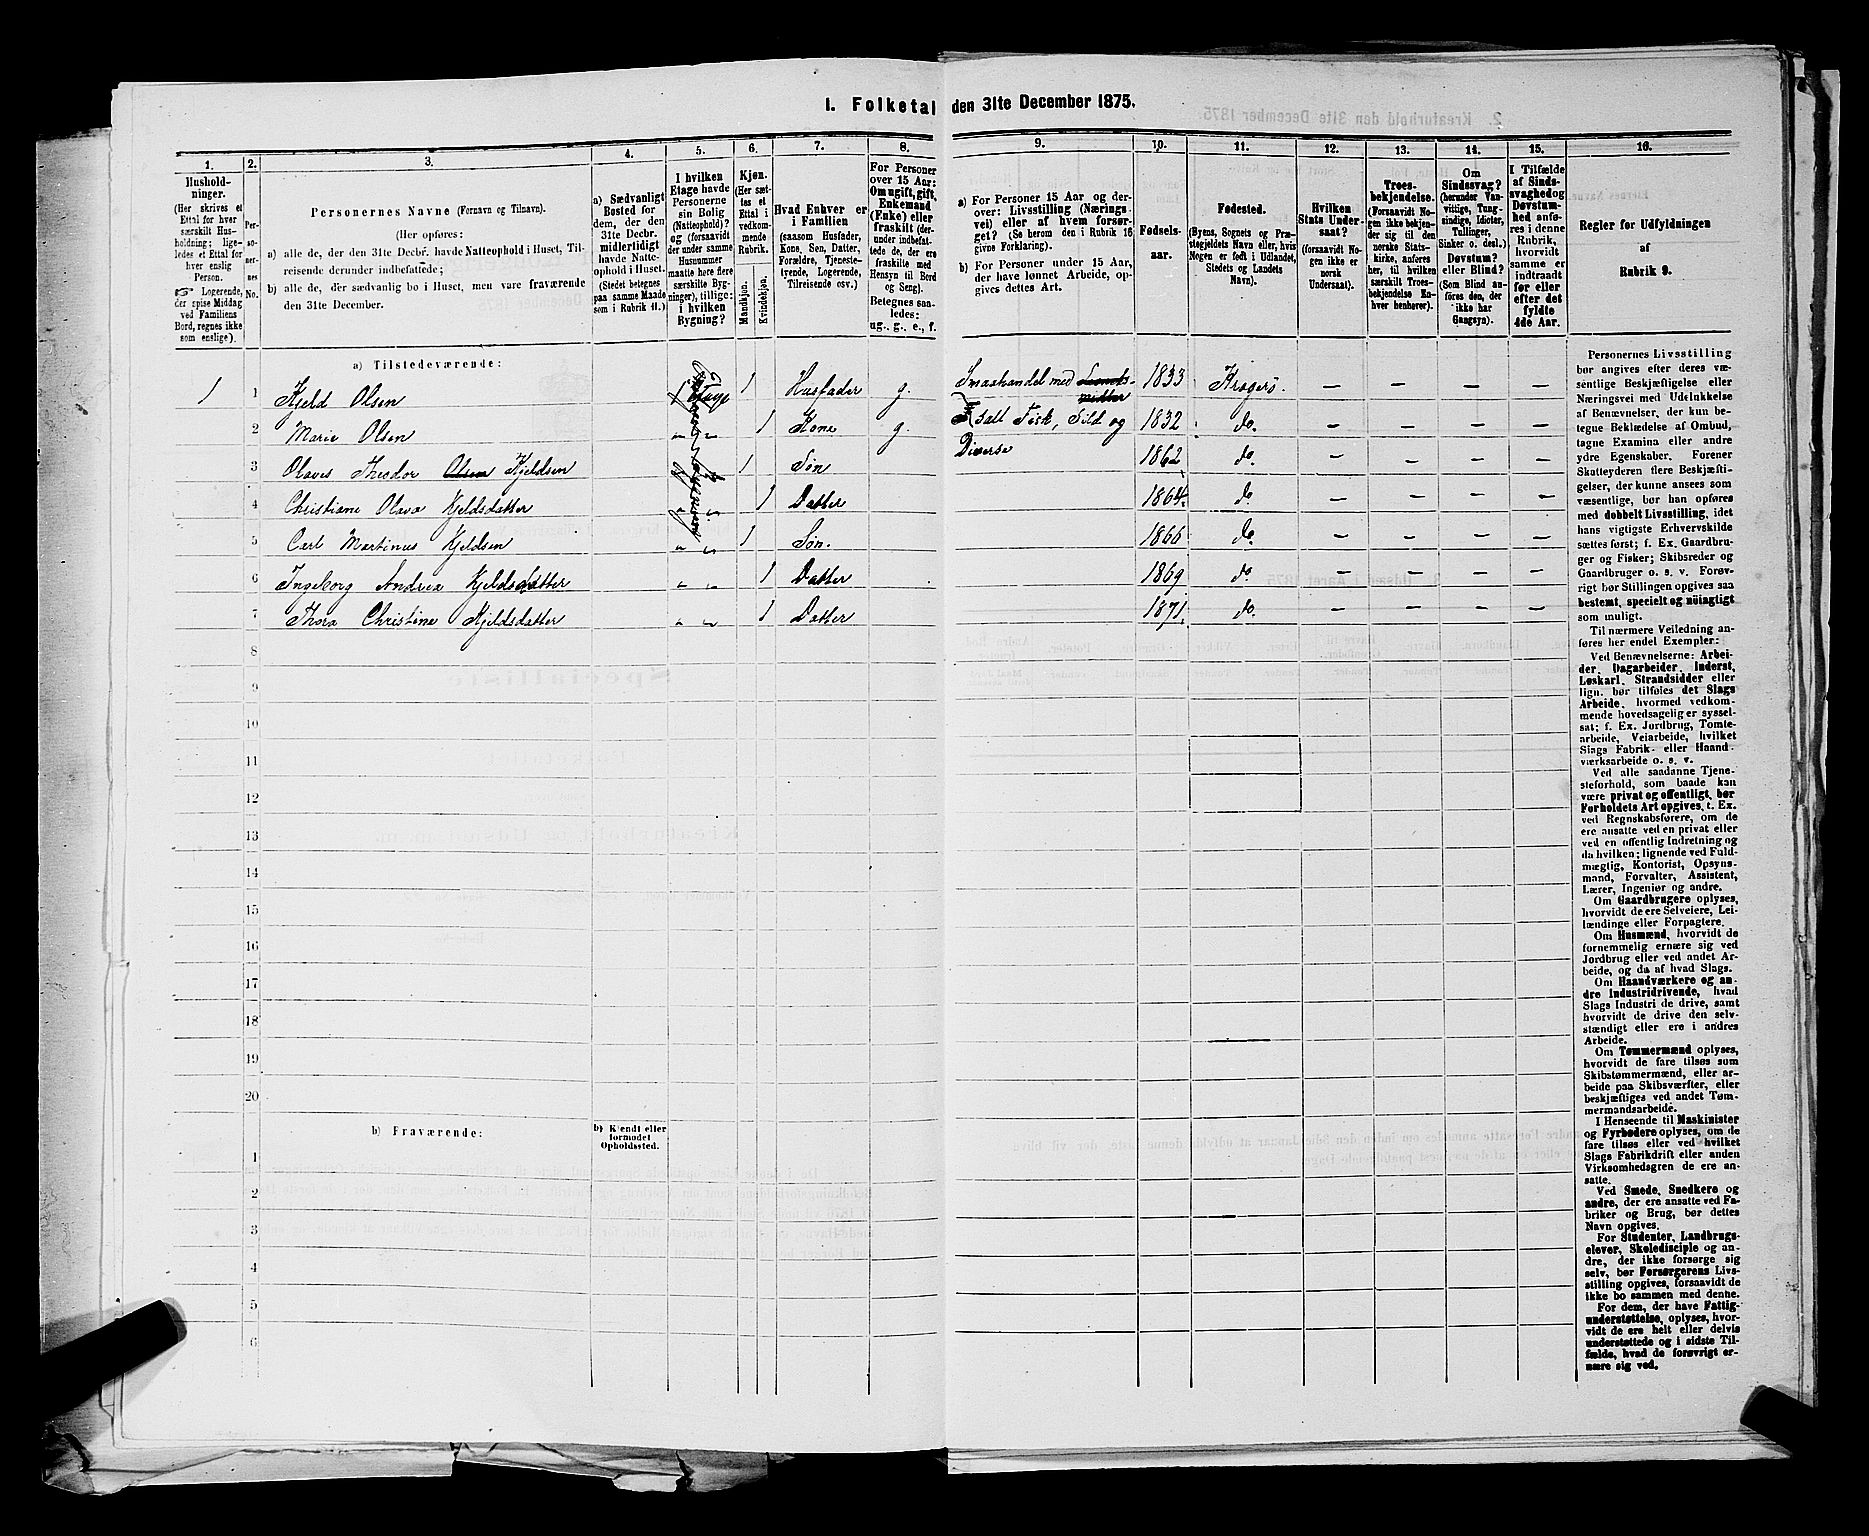 1. Folketal den 31te December 1875.
1.
2.
3.
4.
5.
6.
7.
8.
9.
10.
11.
12.
13.
14.
15.
16.
Hushold-
ninger.
(Her skrives et
Ettal for hver
særskilt Hus-
holdning; lige-
ledes et Ettal for
hver enslig
Person.
☞ Logerende,
der spise Middag
ved Familiens
Bord, regnes ikke
som enslige).
Per-
so-
ner-
nes
No.
Personernes Navne (Fornavn og Tilnavn).
(Her opføres:
a) alle de, der den 31te Decbr. havde Natteophold i Huset, Til-
reisende derunder indbefattede;
b) alle de, der sædvanlig bo i Huset, men vare fraværende
den 31te December.
a) Sædvanligt
Bosted for
dem, der den
31te Decbr.
midlertidigt
havde Natte-
ophold i Huset.
(Stedet betegnes
paa samme Maade
som i Rubrik 11.)
I hvilken
Etage havde
Personerne
sin Bolig
(Natteophold)?
og (forsaavidt
der under samme
Husnummer
maatte høre flere
særskilte Byg-
ninger), tillige:
i hvilken
Bygning?
Kjøn.
(Her sæt-
tes et
Ettal i
vedkom-
mende
Rubrik.
Mandkjøn.
Kvindekjøn.
Hvad Enhver er
i Familien
(saasom Husfader,
Kone, Søn, Datter,
Forældre, Tjeneste-
tyende, Logerende,
Tilreisende osv.)
For Personer
over 15 Aar:
Om ugift, gift,
Enkemand
(Enke) eller
fraskilt (der-
under indbefat-
tede de, der ere
fraskilte med
Hensyn til Bord
og Seng).
Betegnes saa-
ledes:
ug., g., e., f.
a) For Personer 15 Aar og der-
over: Livsstilling (Nærings-
vei) eller af hvem forsør-
get? (Se herom den i Rubrik 16
givne Forklaring).
b) For Personer under 15 Aar,
der have lønnet Arbeide, op-
gives dettes Art.
Fødsels-
aar.
Fødested.
(Byens, Sognets og Præ-
stegjeldets Navn eller, hvis
Nogen er født i Udlandet,
Stedets og Landets
Navn).
Hvilken
Stats Under-
saat?
(forsaavidt No-
gen ikke er
norsk
Undersaat).
Troes-
bekjendelse.
(Forsaavidt No-
gen ikke bekjen-
der sig til den
norske Stats-
kirke, anføres
her, til hvilken
særskilt Troes-
bekjendelse En-
hver henhører).
Om
Sindssvag?
(herunder Van-
vittige, Tung-
sindige, Idioter,
Tullinger,
Sinker o. desl.)
Døvstum?
eller Blind?
(Som Blind an-
føres den, der
ikke har
Gangsyn).
I Tilfælde
af Sinds-
svaghed og
Døvstum-
hed anfø-
res i denne
Rubrik,
hvorvidt
samme er
indtraadt
før eller
efter det
fyldte
4de Aar.
Regler for Udfyldningen
af
Rubrik 9.
a) Tilstedeværende:
1 1 Kjeld Olsen 1 Etage 1 Husfader g. Smaahandel med 1833 Kragerø. — — — —
2 Marie Olsen „ „ 1 Kone g. salt Fisk, Sild og 1832 do. — — — —
Diverse
3 Olaves Theodor Olsen Kjeldsen 1 Søn 1862 do. — — — —
4 Christiane Olava Kjeldsdatter 1 Datter 1864. do — — — —
5 Carl Martinus Kjeldsen „ „ 1 Søn. 1866 do. — — — —
6 Ingeborg Andrea Kjeldsdatter „ „ 1 Datter 1869 do. — — — —
7 Thora Christine Kjeldsdatter „ „ 1 Datter 1871. do. — — — —
8
9
10
11
12
13
14
15
16
17
18
19
20
b) Fraværende:
b) Kjendt eller
formodet
Opholdssted.
1
2
3
4
5
6
Personernes Livsstilling
bør angives efter deres væ-
sentlige Beskjæftigelse eller
Næringsvei med Udelukkelse
af Benævnelser, der kun be-
tegne Beklædelse af Ombud,
tagne Examina eller andre
ydre Egenskaber. Forener
Skatteyderen flere Beskjæfti-
gelser, der kunne ansees som
væsentlige, bør han opføres
med dobbelt Livsstilling, idet
hans vigtigste Erhvervskilde
sættes først; f. Ex. Gaardbru-
ger og Fisker; Skibsreder og
Gaardbruger o. s. v. Forøv-
rigt bør Stillingen opgives saa
bestemt, specielt og nøiagtigt
som muligt.
Til nærmere Veiledning an-
føres her endel Exempler:
Ved Benævnelserne: Arbei-
der, Dagarbeider, Inderst,
Løskarl, Strandsidder eller
lign. bør tilføies det Slags
Arbeide, hvormed vedkom-
mende hovedsagelig er syssel-
sat; f. Ex. Jordbrug, Tomte-
arbeide, Veiarbeide, hvilket
Slags Fabrik- eller Haand-
værksarbeide o. s. v.
Ved alle saadanne Tjene-
steforhold, som baade kan
være privat og offentligt, bør
Forholdets Art opgives, t. Ex.
ved Regnskabsførere, om de
ere ansatte ved en privat eller
ved en offentlig Indretning og
da hvilken; lignende ved Fuld-
mægtig, Kontorist, Opsyns-
mand, Forvalter, Assistent,
Lærer, Ingeniør og andre.
Om Gaardbrugere oplyses,
hvorvidt de ere Selveiere, Lei-
lændinge eller Forpagtere.
Om Husmænd, hvorvidt de
fornemmelig ernære sig ved
Jordbrug eller ved andet Ar-
beide, og da af hvad Slags.
Om Haandværkere og an-
dre Industridrivende, hvad
Slags Industri de drive, samt
hvorvidt de drive den selv-
stændigt eller ere i andres
Arbeide.
Om Tømmermænd oplyses,
hvorvidt de fare tilsøs som
Skibstømmermænd, eller ar-
beide paa Skibsværfter, eller
beskjæftiges ved andet Tøm-
mermandsarbeide.
I Henseende til Maskinister
og Fyrbødere oplyses, om de
fare tilsøs eller ved hvilket
Slags Fabrikdrift eller anden
Virksomhedsgren de ere an-
satte.
Ved Smede, Snedkere og
andre, der ere ansatte ved Fa-
briker og Brug, bør dettes
Navn opgives.
For Studenter, Landbrugs-
elever, Skoledisciple og an-
dre, der ikke forsørge sig
selv, bør Forsørgerens Livs-
stilling opgives, forsaavidt de
ikke bo sammen med denne.
For dem, der have Fattig-
understøttelse, oplyses, hvor-
vidt de ere helt eller delvis
understøttede og i sidste Til-
fælde, hvad de forøvrigt er-
nære sig ved.